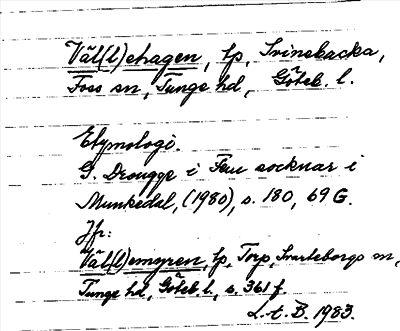 Väl(l)ehagen, lp, Svinebacka,
Foss sn, Tunge hd, Göteb. l.
Etymologi.
G. Drougge i Fem socknar i
Munkedal, (1980), s. 180, 69 G.
Jfr:
Väl(l)emyren, lp, Torp, Svarteborgs sn,
Tunge hd, Göteb. l., s. 361 f.
L.A.B. 1983.